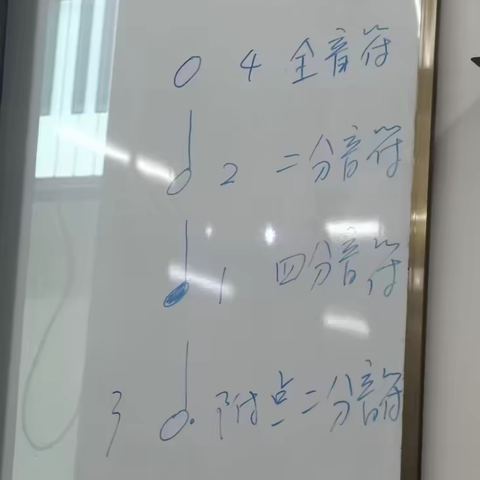 4 全音符
2 二分音符
1 四分音符
3 附点二分音符